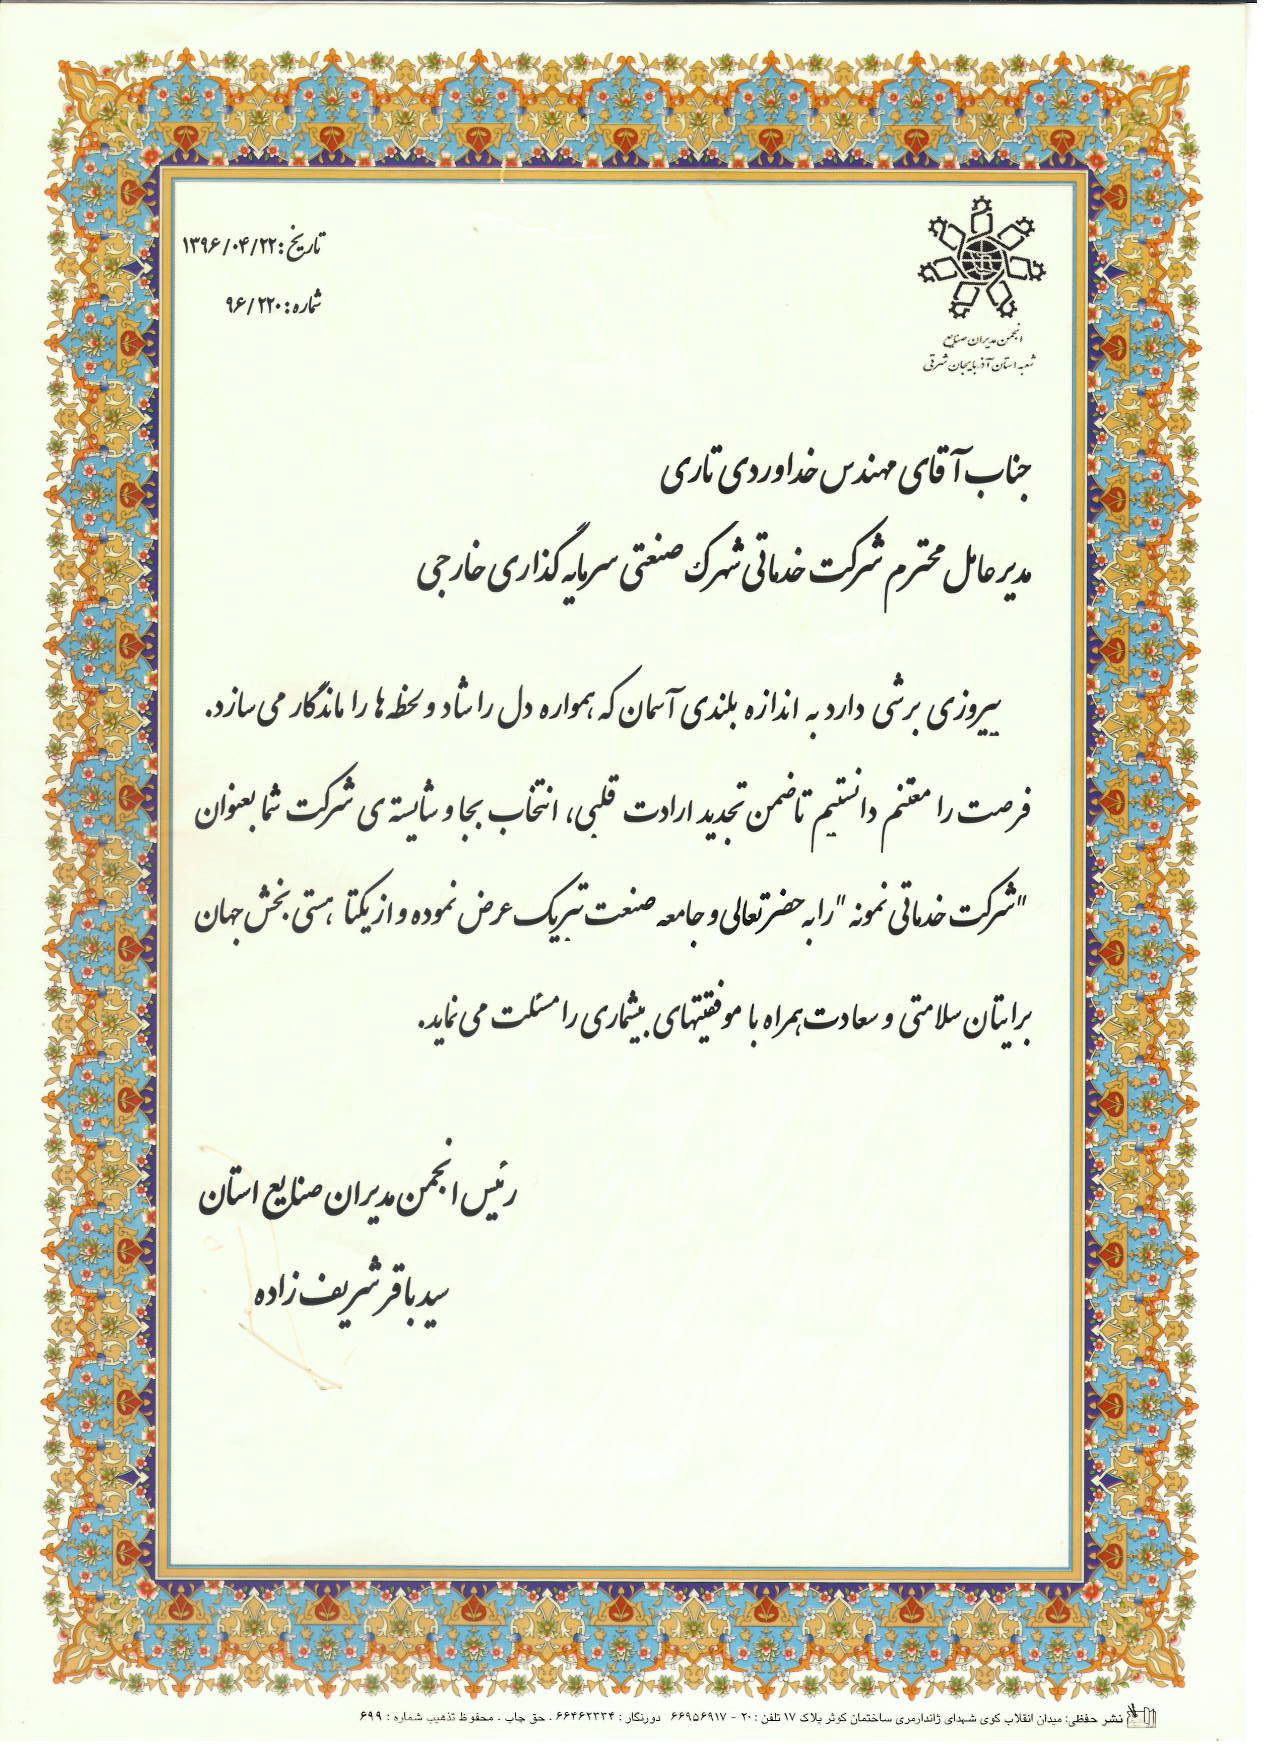 تاریخ: ۱۳۹۶/۰۴/۲۲
شماره: ۹۶/۲۲۰
انجمن مدیران صنایع
شعبه استان آذربایجان شرقی
جناب آقای مهندس خداوردی تاری
مدیر عامل محترم شرکت خدماتی شهرک صنعتی سرمایه گذاری خارجی
پیروزی برشی دارد به اندازه بلندی آسمان که همواره دل را شاد و لحظه ها را ماندگار می سازد.
فرصت را مغتنم دانستیم تا ضمن تجدید ارادت قلبی، انتخاب بجا و شایسته ی شرکت شما بعنوان
"شرکت خدماتی نمونه" را به حضرتعالی و جامعه صنعت تبریک عرض نموده و از یکتا هستی بخش جهان
برایتان سلامتی و سعادت همراه با موفقیتهای بیشماری را مسئلت می نماید.
رئیس انجمن مدیران صنایع استان
سید باقر شریف زاده
نشر حفظی: میدان انقلاب کوی شهدای ژاندارمری ساختمان کوثر پلاک ۱۷ تلفن: ۲۰ - ۶۶۹۵۶۹۱۷ دورنگار: ۶۶۴۶۲۳۳۴. حق چاپ . محفوظ تذهیب شماره: ۶۹۹